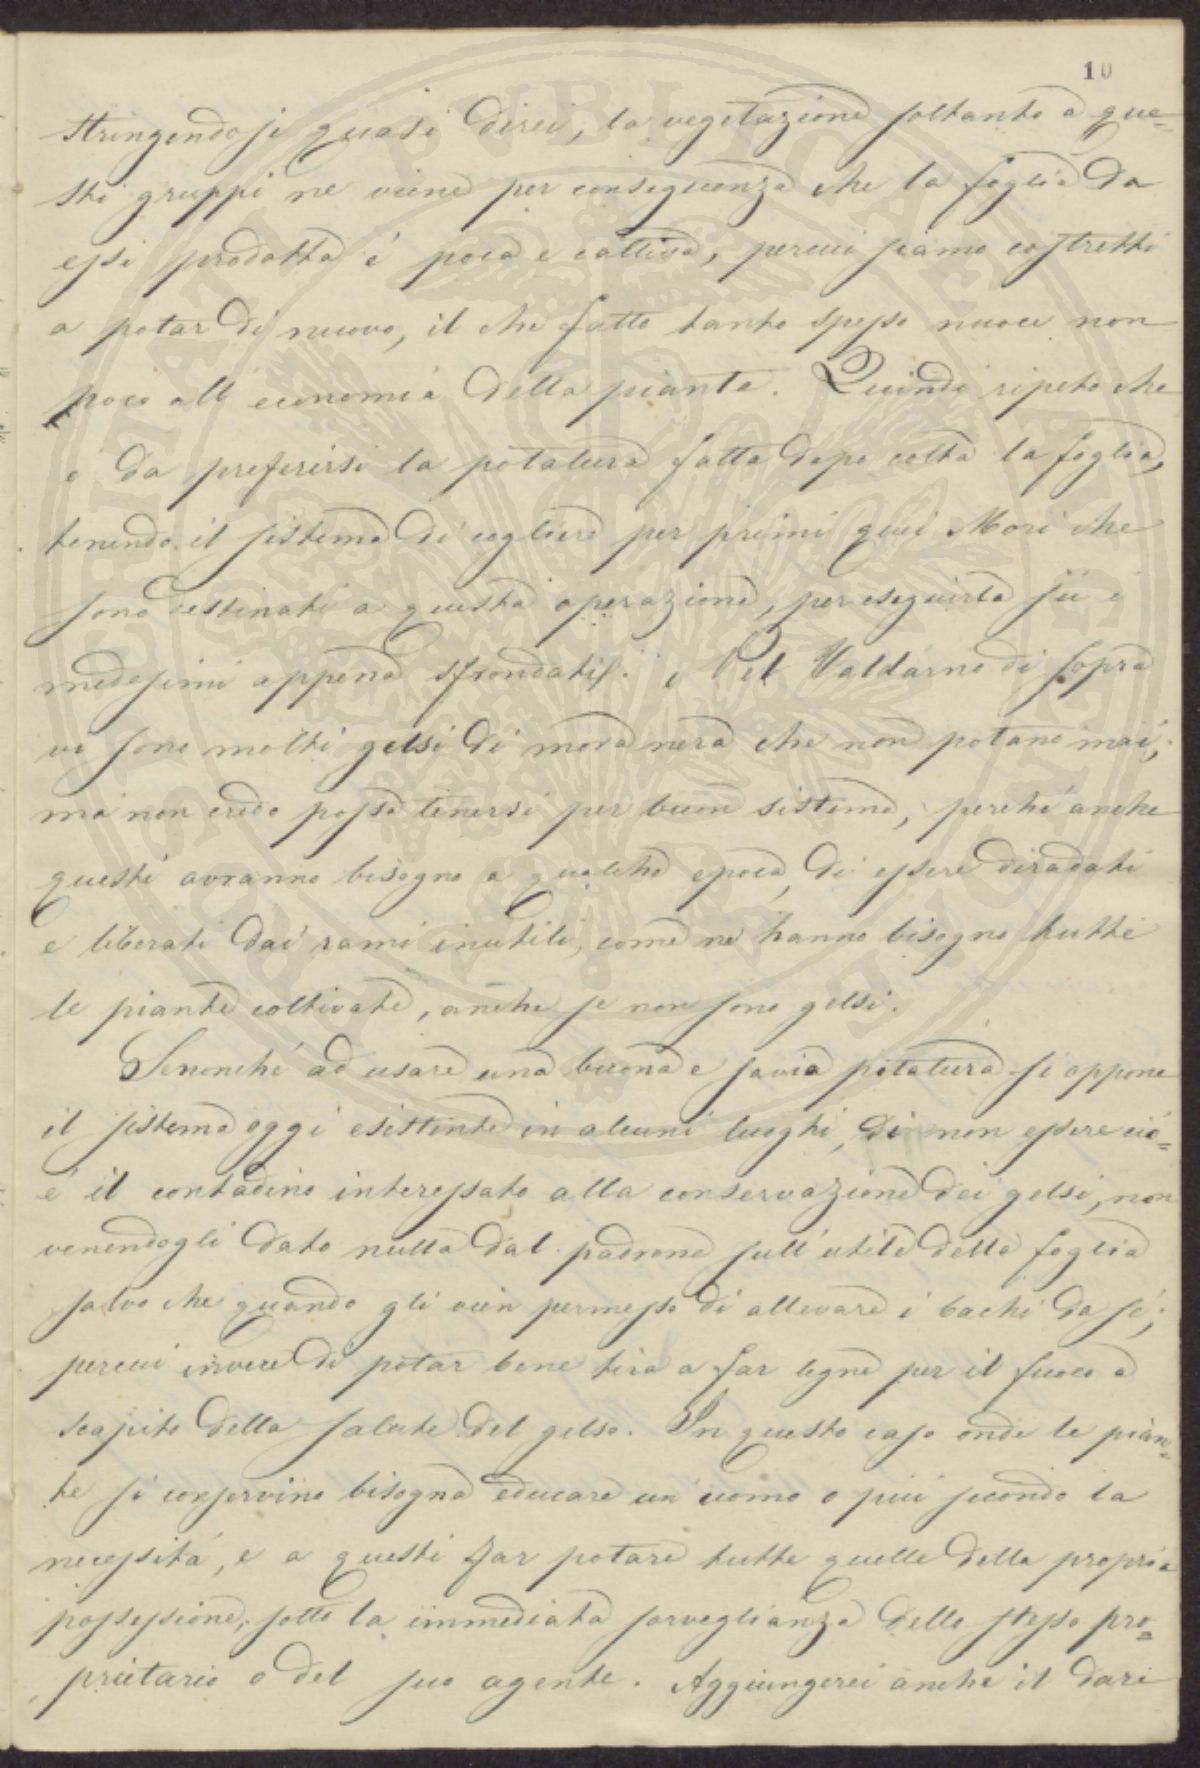 10
stringendosi quasi direi, la vegetazione soltanto a que=
sti gruppi ne viene per conseguenza che la foglia da
essi prodotta è poca e cattiva, percui siamo costretti
a potar di nuovo, il che fatto tanto spesso nuoce non
poco all'economia della pianta. Quindi ripeto che
è da preferirsi la potatura fatta dopo colta la foglia,
tenendo il sistema di cogliere per primi quei Mori che
sono destinati a questa operazione, per eseguirla sù i
medesimi appena sfrondatisi. Nel Valdarno di sopra
vi sono molti gelsi di mora nera che non potano mai;
ma non credo possa tenersi per buon sistema, perché anche
questi avranno bisogno a qualche epoca, di essere diradati
e liberati dai rami inutili, come ne hanno bisogno tutte
le piante coltivate, anche se non sono gelsi.
Senonché ad usare una buona e savia potatura si oppone
il sistema oggi esistente in alcuni luoghi, di non essere cio=
è il contadino interessato alla conservazione dei gelsi, non
venendogli dato nulla dal padrone sull'utile della foglia
salvo che quando gli vien permesso di allevare i bachi da sé;
percui invece di potar bene tira a far legne per il fuoco a
scapito della salute del gelso. In questo caso onde le pian=
te si conservino bisogna educare un'uomo o più secondo la
necessità, e a questi far potare tutte quelle della propria
possessione, sotto la immediata sorveglianza dello stesso pro=
prietario o del suo agente. Aggiungerei anche il dare